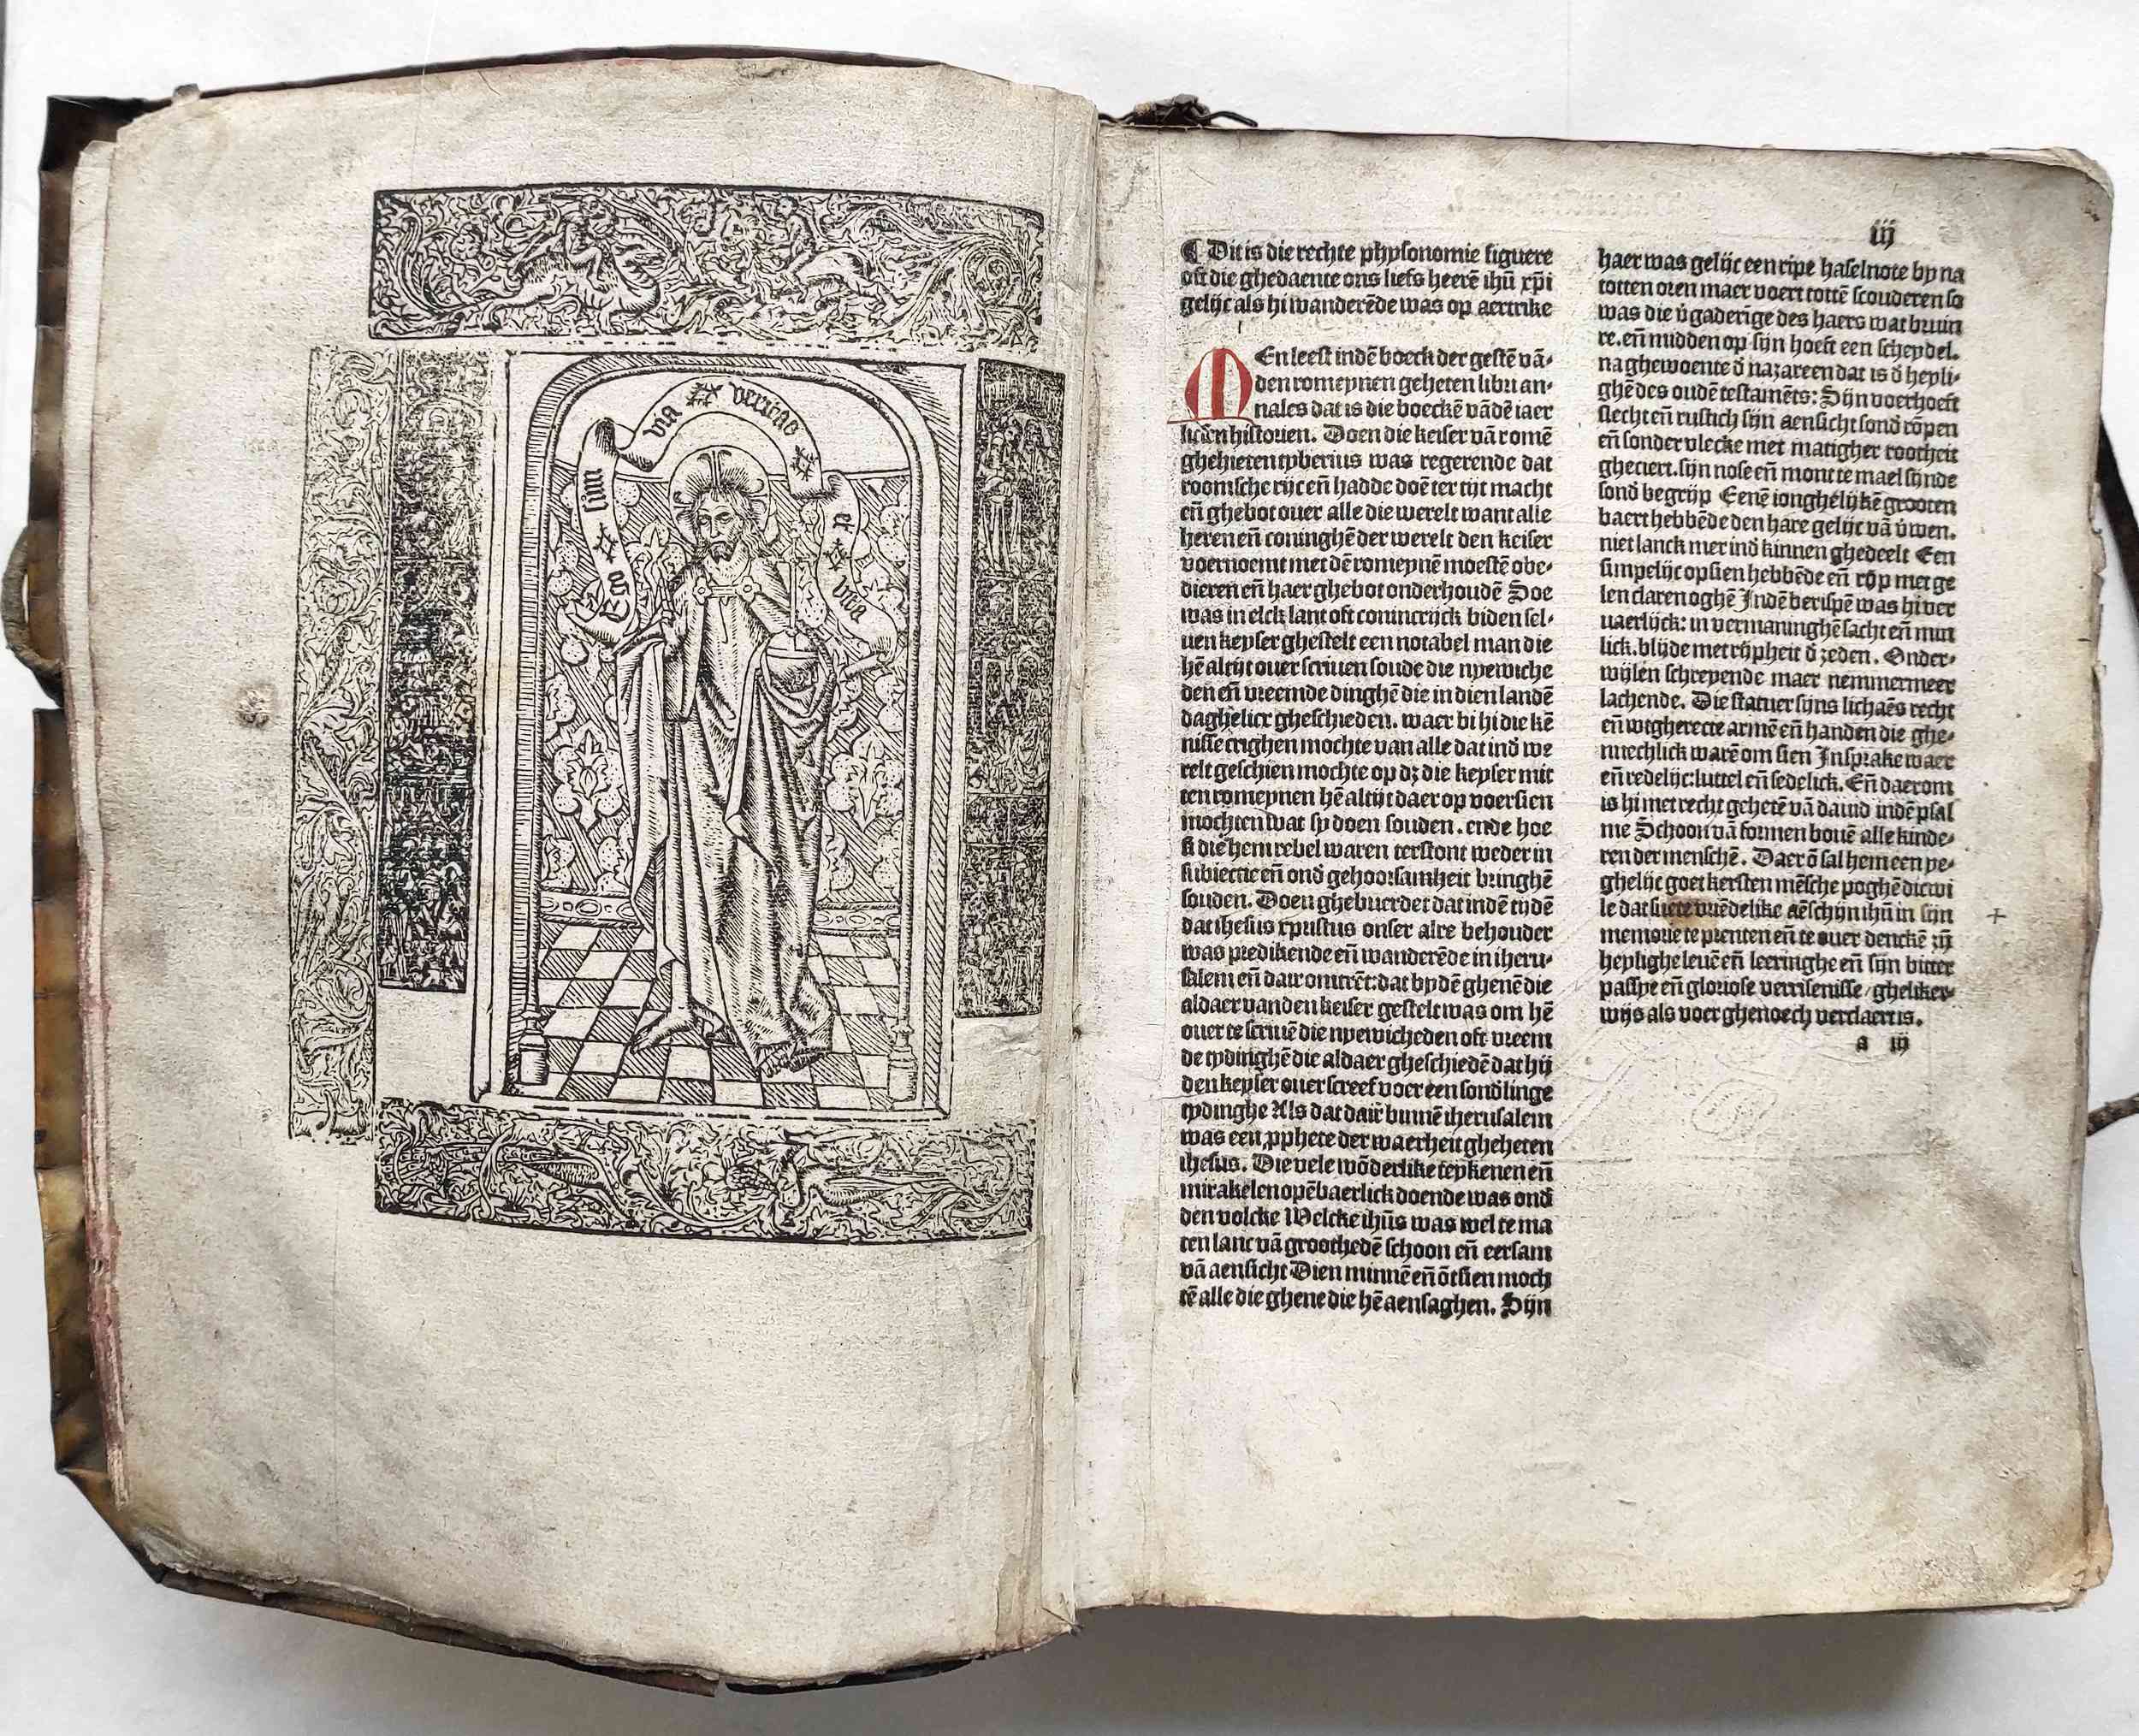 Ego sum via veritas et vita
iij
¶ Dit is die rechte physonomie figuere
oft die ghedaente ons liefs heerē ihū xp̄i
gelijc als hi wanderēde was op aertrike
MEn leest indē boeck der gestē vā-
den romeynen geheten libri an-
nales dat is die boeckē vādē iaer
licdēn historien. Doen die keiser vā romē
ghehieten tyberius was regerende dat
roomsche rijc eñ hadde doē ter tijt macht
eñ ghebot ouer alle die werelt want alle
heren eñ coninghē der werelt den keiser
voernoemt met dē romeynē moestē obe-
dieren eñ haer ghebot onderhoudē Soe
was in elck lant oft conincrijck biden sel-
uen keyser ghestelt een notabel man die
hē altijt ouer scriuen soude die nyewiche
den eñ vreemde dinghē die in dien landē
daghelicx gheschieden. waer bi hi die kē
nisse crighen mochte van alle dat ind̄ we
relt geschien mochte op dz die keyser mit
ten romeynen hē altijt daer op voersien
mochten wat sy doen souden. ende hoe
si die hem rebel waren terstont weder in
subiectie eñ ond̄ gehoorsamheit bringhē
souden. Doen ghebuerdet dat indē tydē
dat ihesus xpristus onser alre behouder
was predikende eñ wanderēde in iheru-
salem eñ dair omtrēt: dat by dē ghenē die
aldaer vanden keiser gestelt was om hē
ouer te scriuē die nyewicheden oft vreem
de tydinghē die aldaer gheschiedē dat hij
den keyser ouer screef voer een sond̄linge
tydinghe Als dat dair binnē iherusalem
was een pphete der waerheit gheheten
ihesus. Die vele wōderlike teykenen eñ
mirakelen opēbaerlick doende was ond̄
den volcke Welcke ihūs was wel te ma
ten lanc vā groothedē schoon eñ eersam
vā aensicht Dien minnē eñ ōtsien moch
tē alle die ghene die hē aensaghen. Sijn
haer was gelijc een ripe haselnote by na
totten oren maer voert tottē scouderen so
was die v̄gaderige des haers wat bruin
re. eñ midden op sijn hoeft een scheydel.
na ghewoente d̄ nazareen dat is d̄ heyli-
ghē des oudē testamēts: Sijn voerhoeft
slecht eñ rustich sijn aensicht sond̄ rōpen
eñ sonder vlecke met matigher rootheit
gheciert. sijn nose eñ mont te mael sijnde
sond̄ begrijp Eenē ionghelijkē grooten
baert hebbēde den hare gelijc vā v̄wen.
niet lanck mer ind̄ kinnen ghedeelt Een
simpelijc opsien hebbēde eñ rijp met ge
len claren oghē Indē berispē was hi ver
uaerlijck: in vermaninghē sacht eñ min
lick. blijde met rijpheit d̄ zeden. Onder-
wijlen schreyende maer nemmermeer
lachende. Die statuer sijns lichaēs recht
eñ wtgherecte armē eñ handen die ghe-
nuechlick warē om sien In sprake waer
eñ redelijc: luttel eñ sedelick. Eñ daerom
is hi met recht gehetē vā dauid indē psal
me Schoon vā formen bouē alle kinde-
ren der menschē. Daer ō sal hem een ye-
ghelijc goet kersten mēsche poghē dicwi
le dat suete vriēdelike aēschijn ihū in sijn
memorie te prenten eñ te ouer denckē zij
heylighe leuē eñ leeringhe eñ sijn bitter
passye eñ gloriose verrisenisse / ghelikes-
wijs als voer ghenoech verclaert is.
a iij